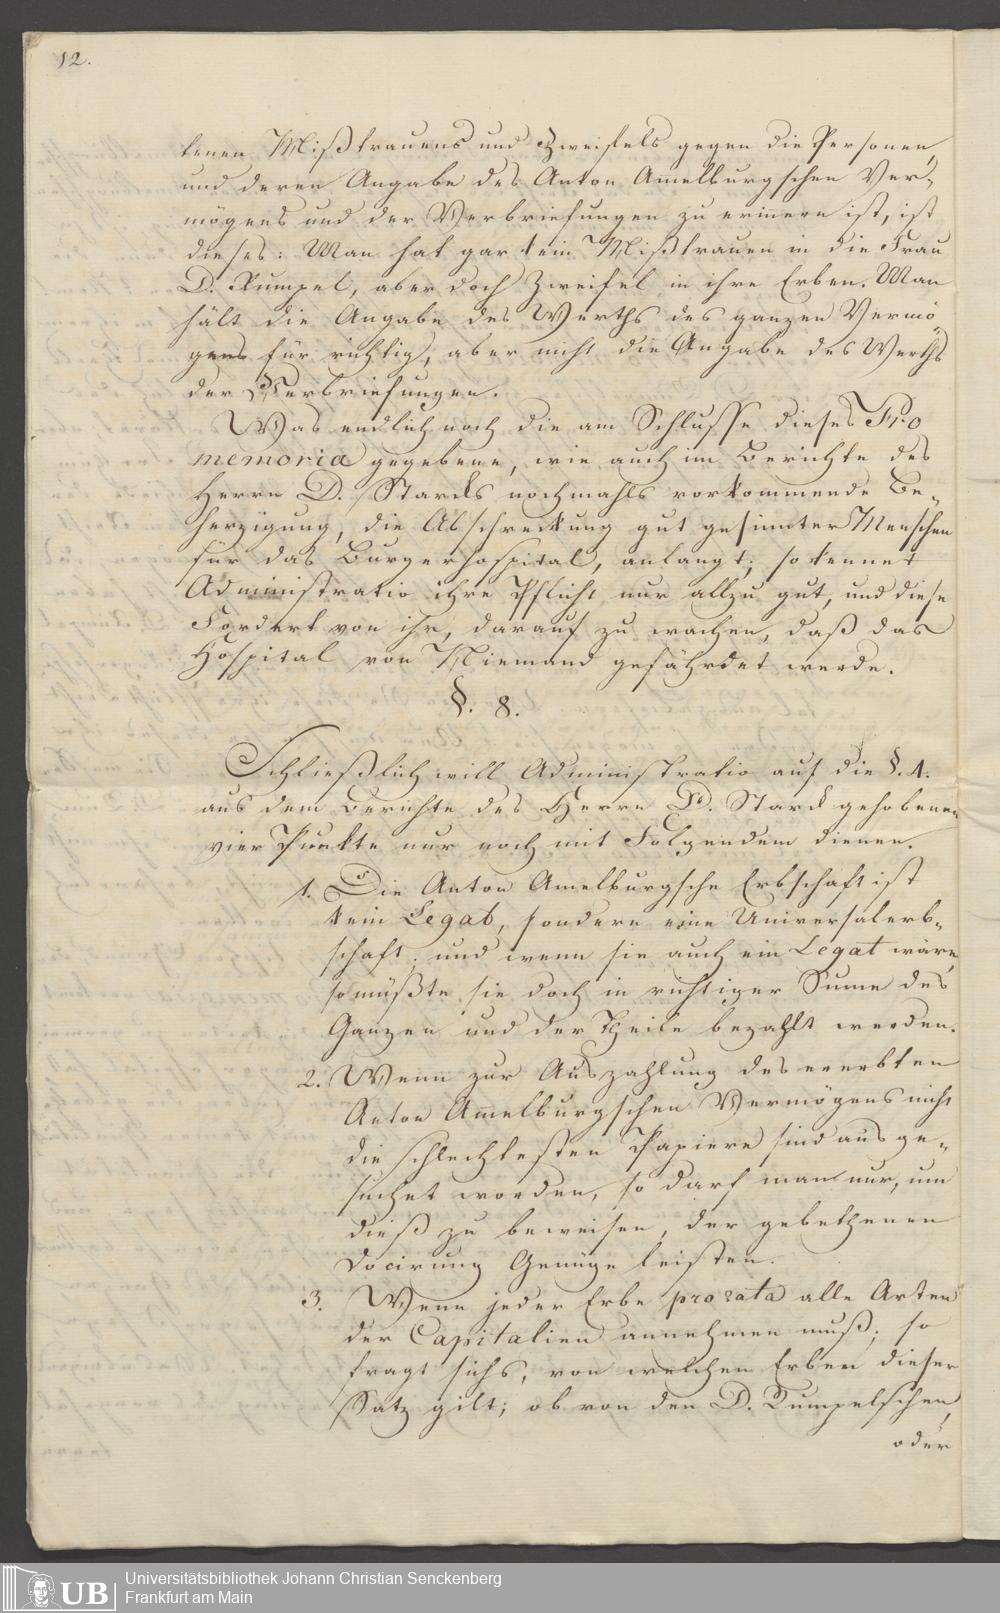 12.
tenen Mißtrauens und Zweifels gegen die Personen,
und deren Angabe des Anton Amelburgschen Ver-
mögens und der Verbriefungen zu erinern ist, ist
dieses: Man hat gar kein Mißtrauen in die Frau
D. Rumpel, aber doch Zweifel in ihre Erben. Man
hält die Angabe des Werths des ganzen Vermö
gens für richtig, aber nicht die Angabe des Werths
der Verbriefungen.
Was endlich noch die am Schlusse dieses Pro
memoria gegebene, wie auch im Berichte des
Herrn D. Starcks nochmahls vorkommende Be-
herzigung, die Abschreckung gut gesinnter Menschen
für das Burgerhospital, anlangt; so kennet
Administratio ihre Pflicht nur allzu gut, und diese
Fordert von ihr, darauf zu wachen, daß das
Hospital von Niemand gefährdet werde.
§. 8.
Schließlich will Administratio auf die §. 4.
aus dem Berichte des Herrn D. Starck gehobenen
vier Punkte nur noch mit Folgendem dienen.
1. Die Anton Amelburgsche Erbschaft ist
kein Legat, sondern eine Universalerb-
schaft; und wenn sie auch ein Legat wäre,
so müßte sie doch in richtiger Sume des
Ganzen und der Theile bezahlt werden.
2. Wenn zur Auszahlung des ererbten
Anton Amelburgschen Vermögens nicht
die schlechtesten Papiere sind ausge-
suchet worden, so darf man nur, um
dieß zu beweisen, der gebethenen
Docirung Genüge leisten.
3. Wenn jeder Erbe pro rata alle Arten
der Capitalien annehmen muß; so
fragt sichs, von welchen Erben dieser
Satz gilt; ob von den D. Rumpelschen,
oder
UB Universitätsbibliothek Johann Christian Senckenberg
Frankfurt am Main